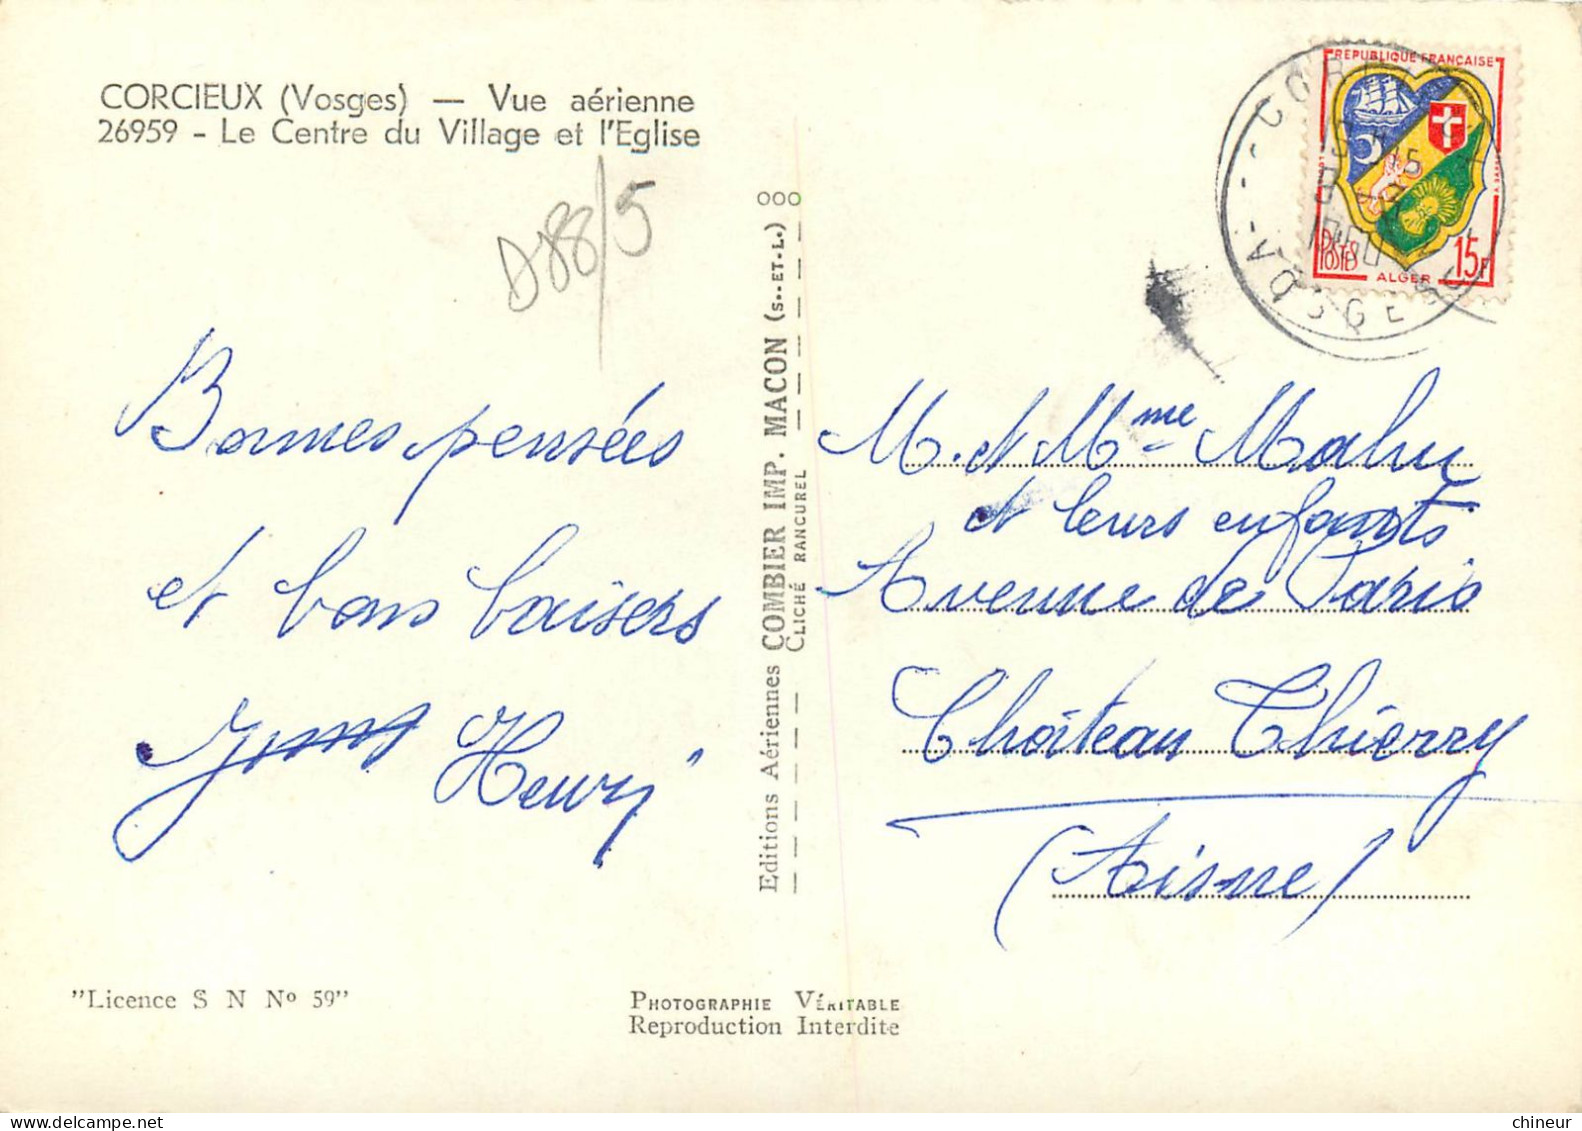 CORCIEUX (Vosges) — Vue aérienne
26959 - Le Centre du Village et l'Eglise
D88/5
Bonnes pensées
et bons baisers
Henry
"Licence S N Nº 59"
PHOTOGRAPHIE VÉRITABLE
Reproduction Interdite
Editions Aériennes COMBIER IMP. MACON (S.. ET-L.)
CLICHÉ RANCUREL
OOO
RÉPUBLIQUE FRANÇAISE
POSTES
15F
ALGER
M. et Mme Mahu
et leurs enfants
Avenue de Paris
Château Thierry
(Aisne)
chineur